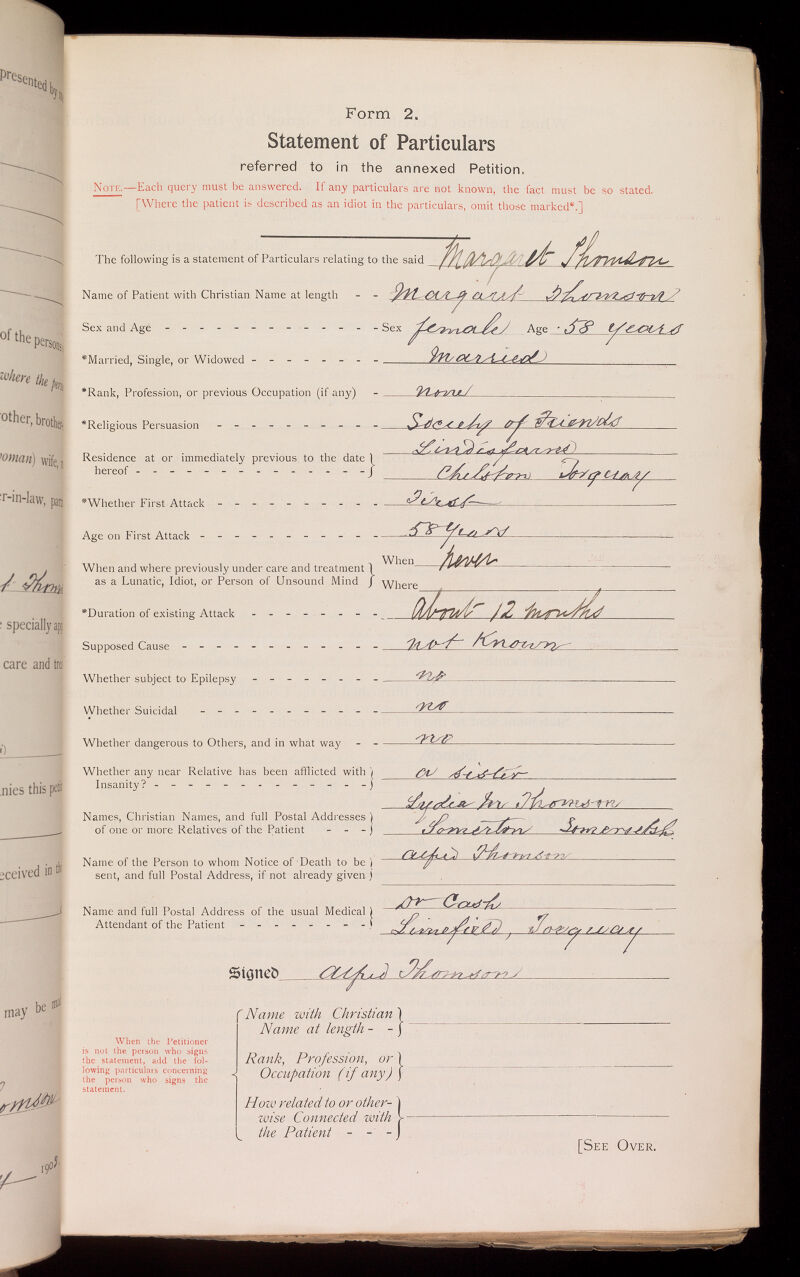 presented by
of the person
where the per
other, brother
woman) wife,
r-in-law, par
specially app
care and tre
nies this peti
eceived in th
may be ma
omson
190
Form 2.
Statement of Particulars
referred to in the annexed Petition.
NOTE.—Each query must be answered. If any particulars are not known, the fact must be so stated.
[Where the patient is described as an idiot in the particulars, omit those marked*.]
The following is a statement of Particulars relating to the said Margaret Thomson
Name of Patient with Christian Name at length - - Margaret Thomson
Sex and Age - - - - - - - - - - - - - Sex female Age 58 years
*Married, Single, or Widowed - - - - - - - - Married
*Rank, Profession, or previous Occupation (if any) - none
*Religious Persuasion - - - - - - - - - - Society of Friends
Residence at or immediately previous to the date } Lindisfarne
hereof - - - - - - - - - - - - - - } Chelston Torquay
*Whether First Attack - - - - - - - - - - First
Age on First Attack - - - - - - - - - - - 58 Years
When and where previously under care and treatment } When never
as a Lunatic, Idiot, or Person of Unsound Mind } Where
*Duration of existing Attack - - - - - - - - About 12 months
Supposed Cause - - - - - - - - - - - - not Known
Whether subject to Epilepsy - - - - - - - - no
Whether Suicidal - - - - - - - - - - - no
Whether dangerous to Others, and in what way - - no
Whether any near Relative has been afflicted with } a sister
Insanity? - - - - - - - - - - - - - }
Lydia M Thomson
Names, Christian Names, and full Postal Addresses }
of one or more Relatives of the Patient - - - } Somerton Somersetsh.
Name of the Person to whom Notice of Death to be } Alfred Thomson
sent, and full Postal Address, if not already given }
Name and full Postal Address of the usual Medical } Dr Cash
Attendant of the Patient - - - - - - - - } Limefield, Torquay
Signed Alfred Thomson
When the Petitioner
is not the person who signs
the statement, add the fol-
lowing particulars concerning
the person who signs the
statement.
Name with Christian }
Name at length - - }
Rank, Profession, or }
Occupation (if any) }
How related to or other- }
wise Connected with }
the Patient - - - }
[SEE OVER.